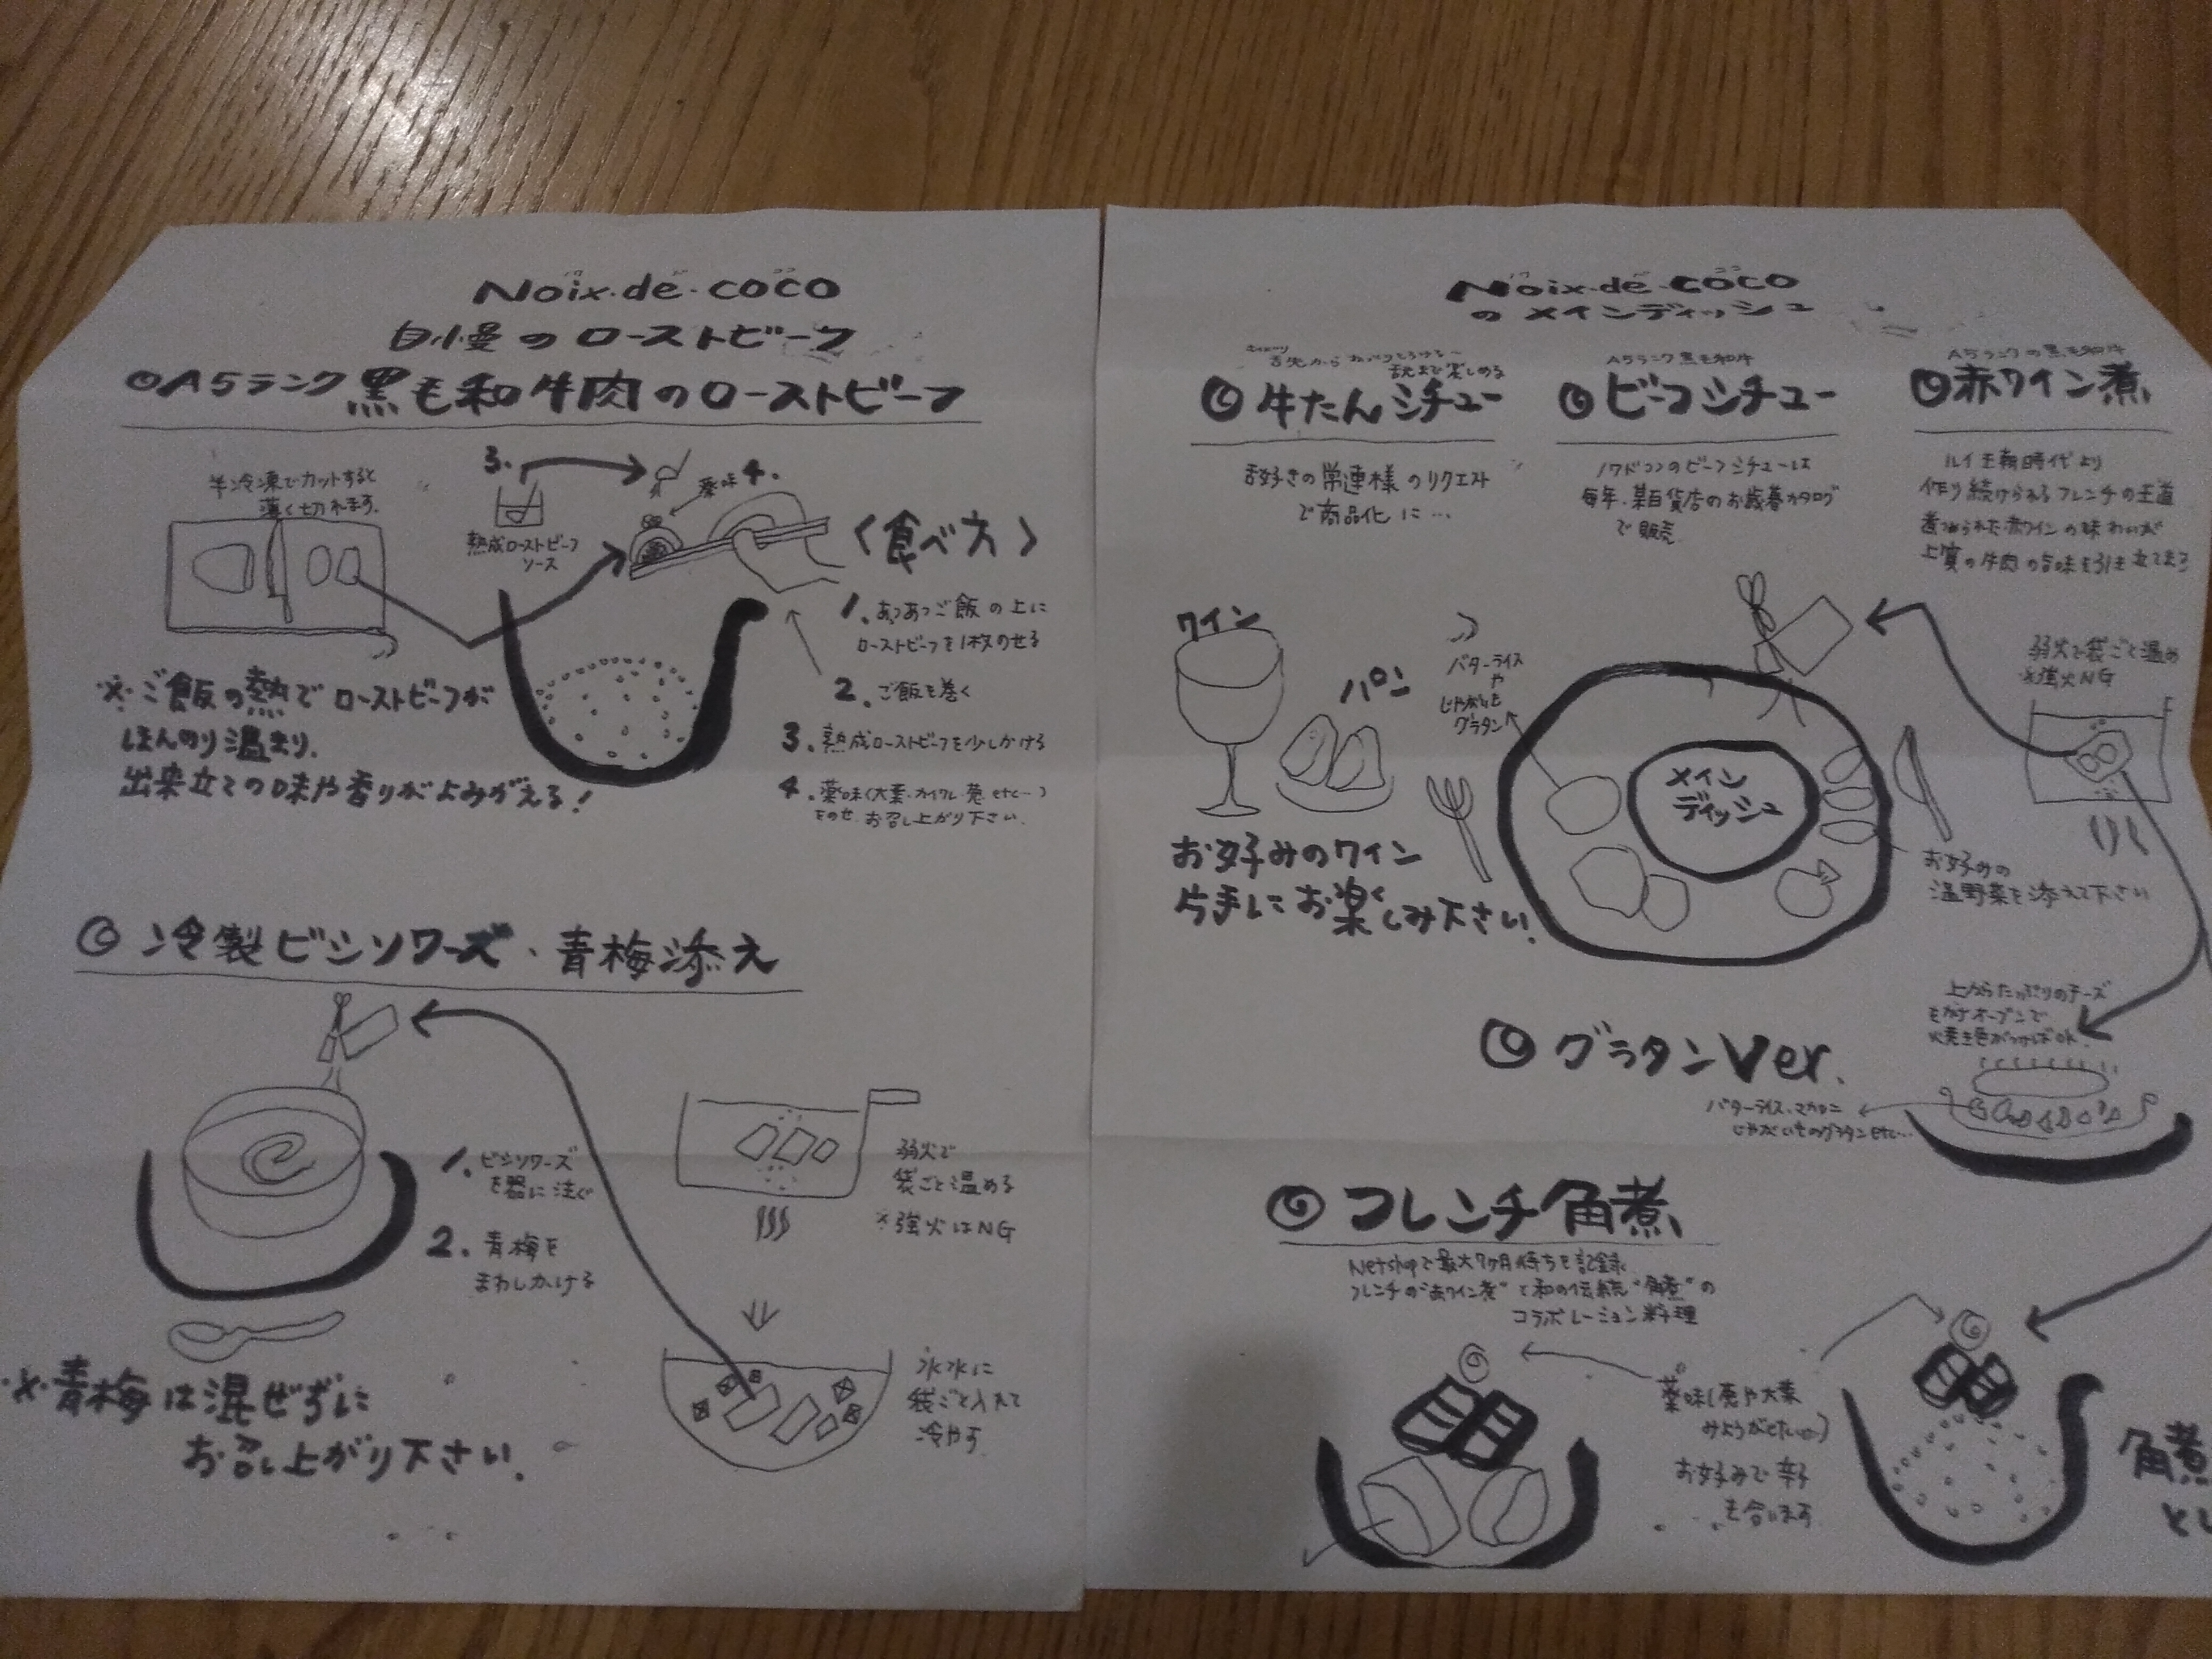 Noix・de・coco
自慢のローストビーフ
◎A5ランク黒毛和牛肉のローストビーフ
半冷凍でカットすると
薄く切れます。
3.
熟成ローストビーフ
ソース
薬味 4.
〈食べ方〉
1. あつあつご飯の上に
ローストビーフを1枚のせる
2. ご飯を巻く
3. 熟成ローストビーフを少しかける
4. 薬味(大葉・カイワレ・葱 etc…)
をのせ、お召し上がり下さい。
※ご飯の熱でローストビーフが
ほんのり温まり、
出来立ての味や香りがよみがえる!
◎冷製ビシソワーズ・青梅添え
1. ビシソワーズ
を器に注ぐ
2. 青梅を
まわしかける
弱火で
袋ごと温める
※強火はNG
氷水に
袋ごと入れて
冷やす
※青梅は混ぜずに
お召し上がり下さい。
ノワ ド ココ
Noix・de・coco
のメインディッシュ
舌先から
舌先まで楽しめる
◎牛たんシチュー
舌好きの常連様のリクエスト
で商品化に…
A5ランク黒毛和牛
◎ビーフシチュー
ノワドココのビーフシチューは
毎年、某百貨店のお歳暮カタログ
で販売
A5ランクの黒毛和牛
◎赤ワイン煮
ルイ王朝時代より
作り続けられるフレンチの王道
煮つめられた赤ワインの味わいが
上質の牛肉の旨味を引き立てます
ワイン
パン
バターライス
や
じゃがいも
グラタン
メイン
ディッシュ
弱火で袋ごと温め
※強火NG
お好みの
温野菜を添えて下さい
お好みのワイン
片手にお楽しみ下さい。
◎グラタンVer.
上からたっぷりのチーズ
をかけオーブンで
焼き色がつけばOK
バターライス・マカロニ
じゃがいものグラタンetc…
◎フレンチ角煮
Netshopで最大7ヶ月待ちを記録
フレンチの“赤ワイン煮”と和の伝統“角煮”の
コラボレーション料理
薬味(葱や大葉
みょうがetc…)
お好みで辛子
も合います
角煮
とし